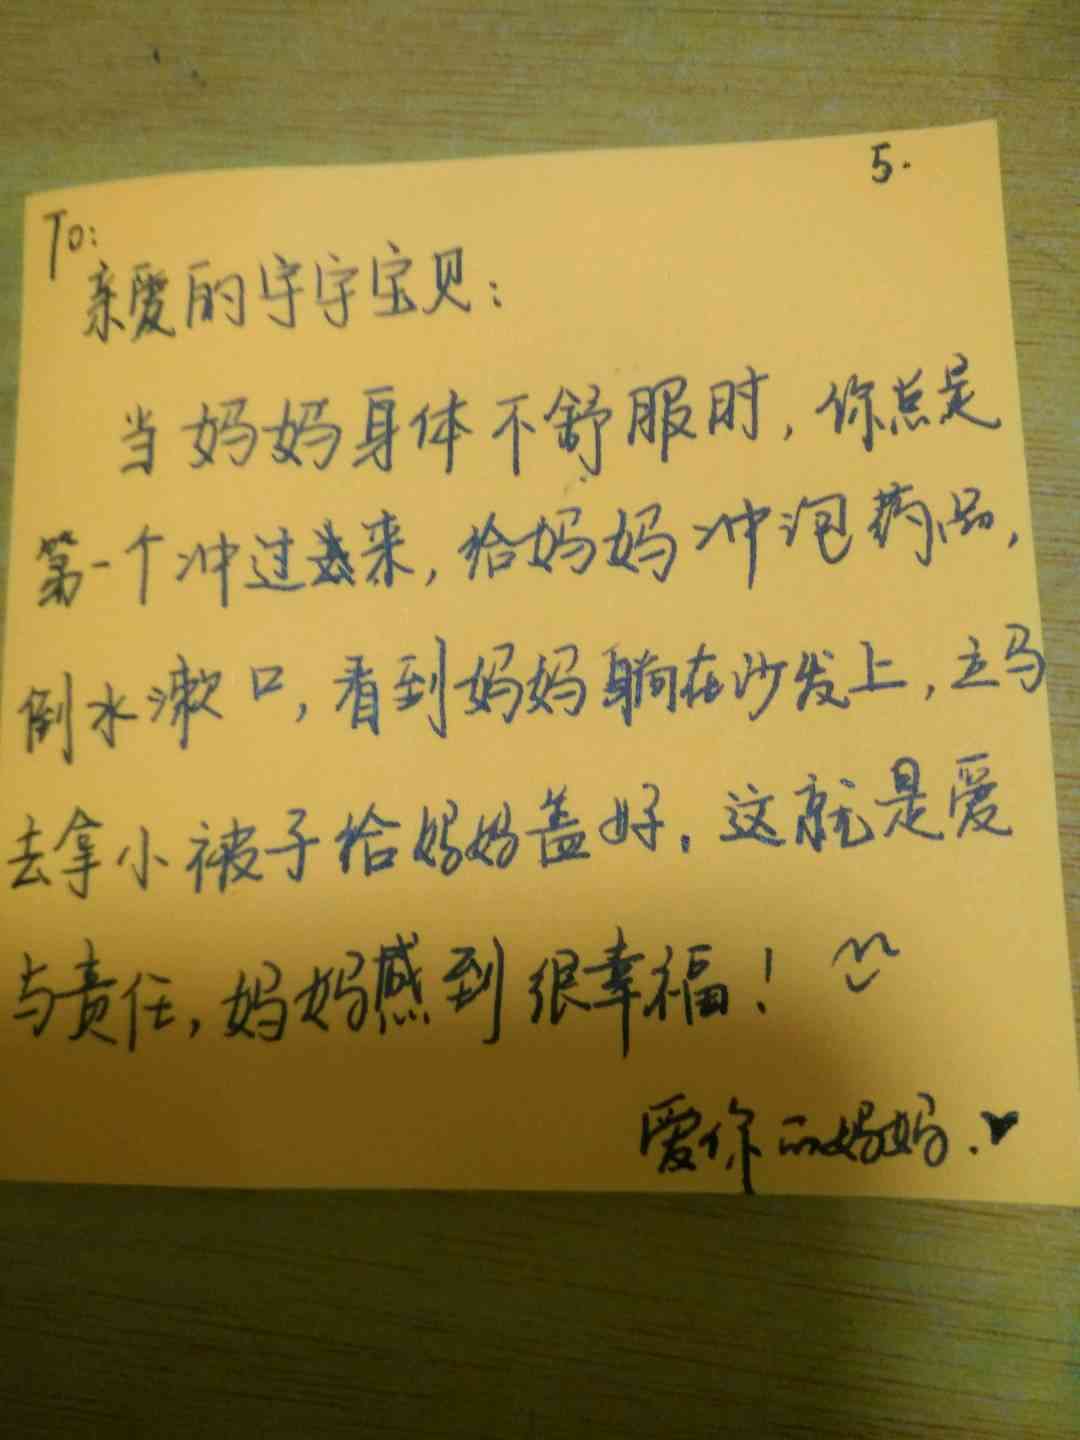 5.
To:
亲爱的宇宇宝贝：
当妈妈身体不舒服时，你总是
第一个冲过来，给妈妈冲泡药品，
倒水漱口，看到妈妈躺在沙发上，立马
去拿小被子给妈妈盖好。这就是爱
与责任，妈妈感到很幸福！
爱你的妈妈.